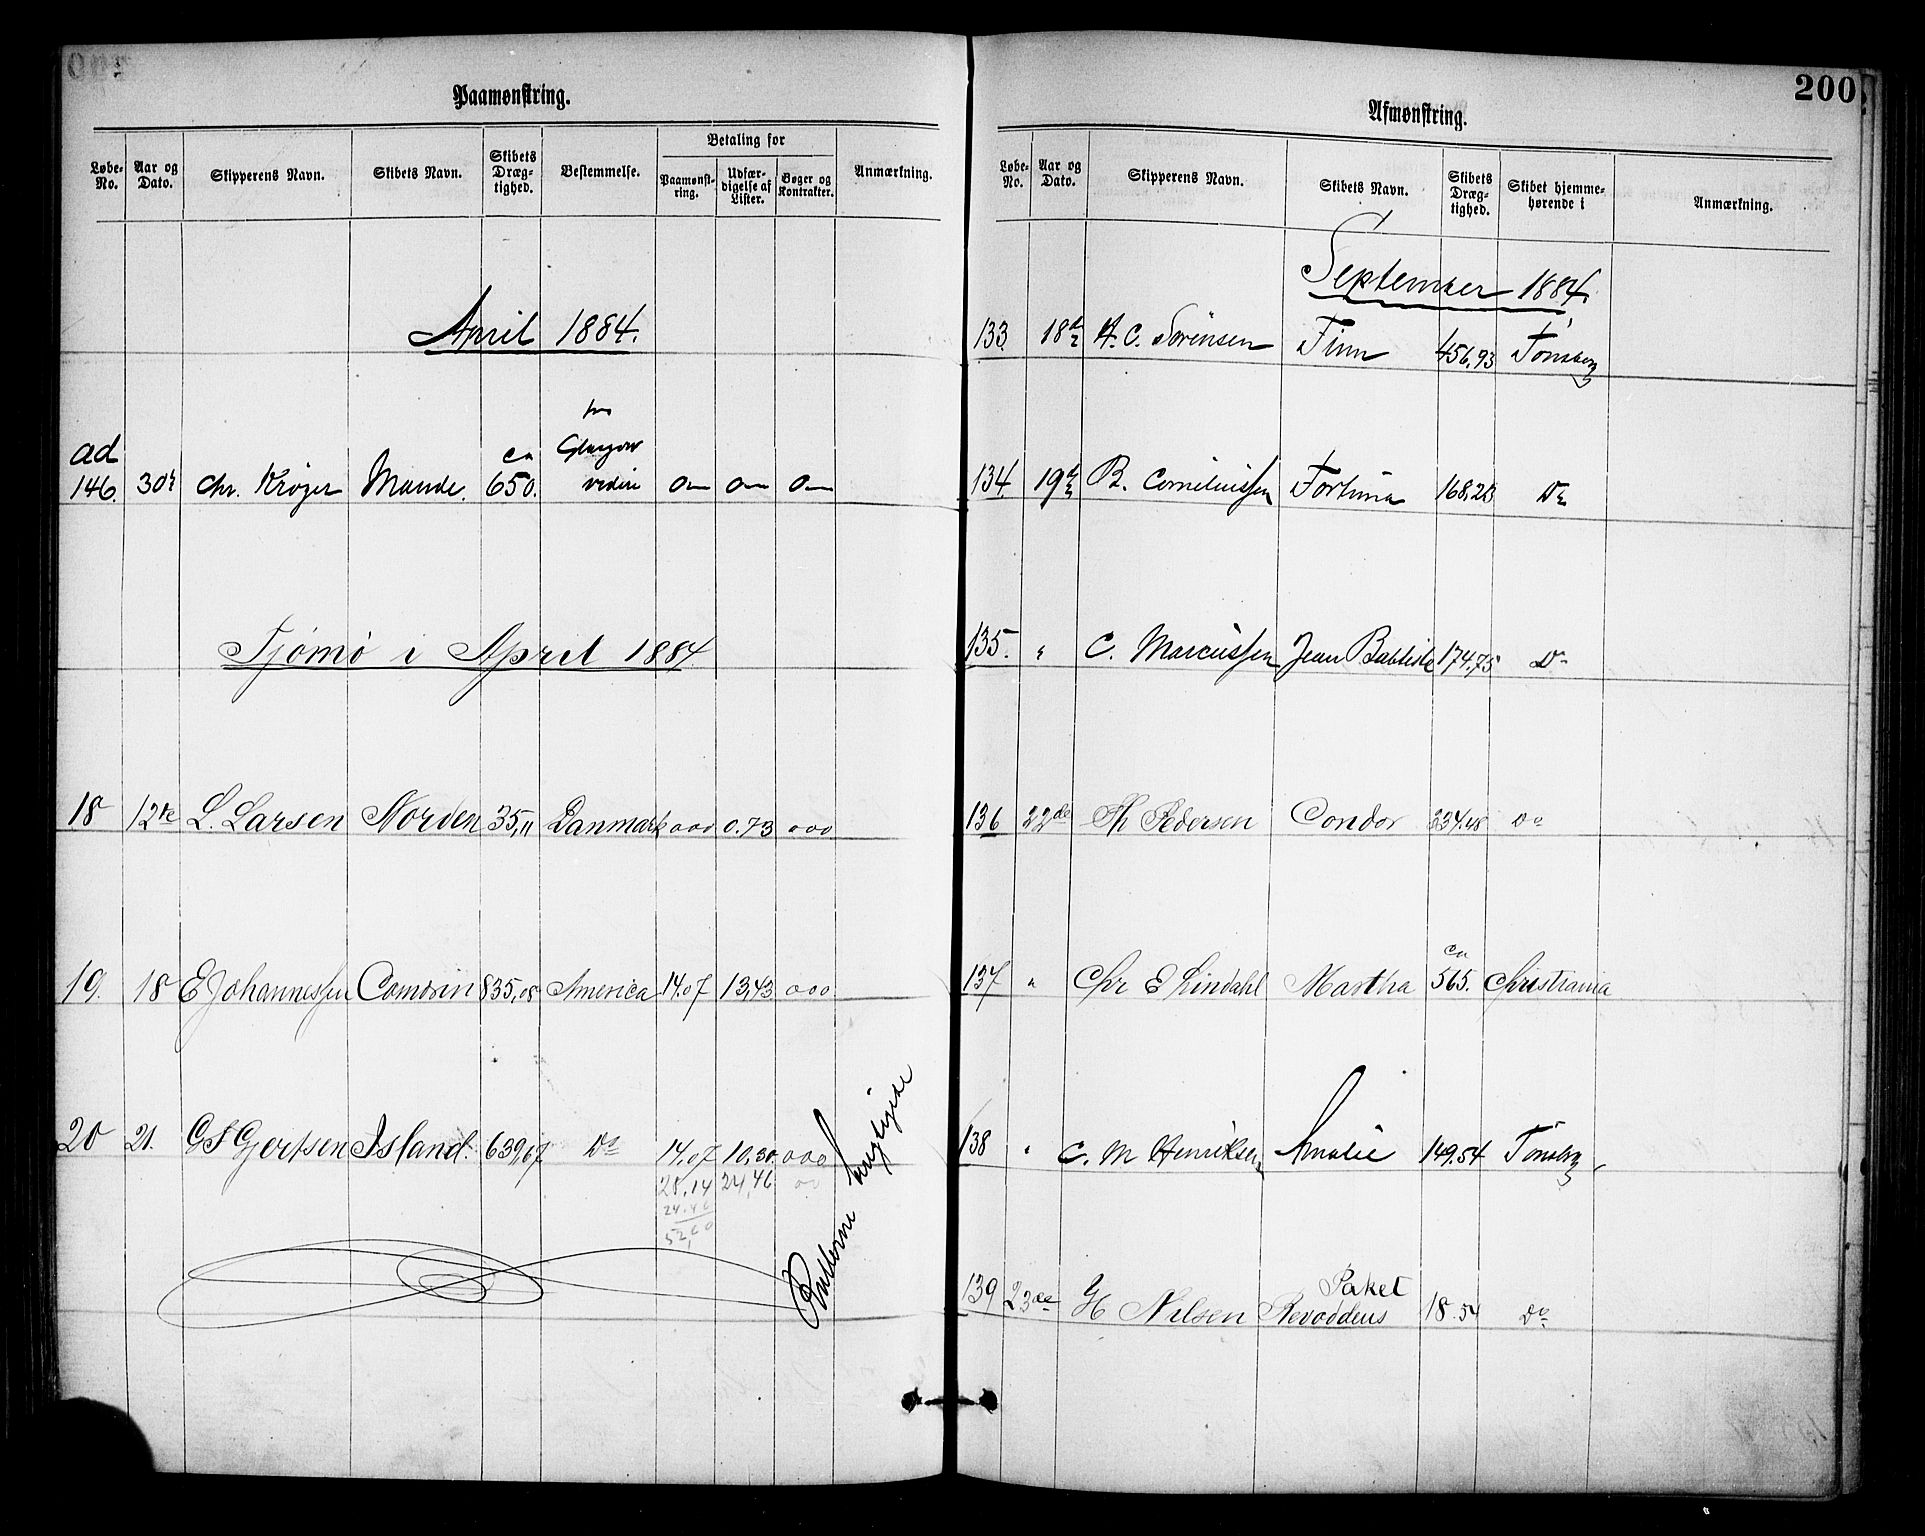 200
Paamønstring.
Løbe-No. Aar og Dato. Skipperens Navn. Skibets Navn. Skibets Dræg-tighed. Bestemmelse. Betaling for Paamønst-ring. Udfær-digelse af Lister. Bøger og Kontrakter. Anmærkning.
April 1884.
ad 146. 30te Chr. Krøger Maude. ca 650. fra Glasgow videre 0— 0— 0—
Tjømø i April 1884
18 12te L. Larsen Norden 35,11 Danmark 000 0.73 000
19. 18 E Johannessen Comorin 835,08 America 14.07 13,43 000
20 21. C S Gjertsen Island. 639,67 Do 14.07 10,30. 000
28.14 24,46 00
24.46
52,60
Rulleme
Afmønstring.
Løbe-No. Aar og Dato. Skipperens Navn. Skibets Navn. Skibets Dræg-tighed. Skibet hjemme-hørende i Anmærkning.
September 1884.
133. 18de A. C. Sørensen Finn 456,93 Tønsberg
134. 19de B. Corneliussen Fortuna 168,23 Do
135. " C. Marcussen Jean Babtiste 174,75 Do
136 22de Th Pedersen Condor 334,48 Do
137 " Chr E Lindahl Martha ca 565. Christiania
138 " C. M Henriksen Amalie 149.54 Tønsberg
139 23de H Nilsen Paket Revoddens 18.54 Do